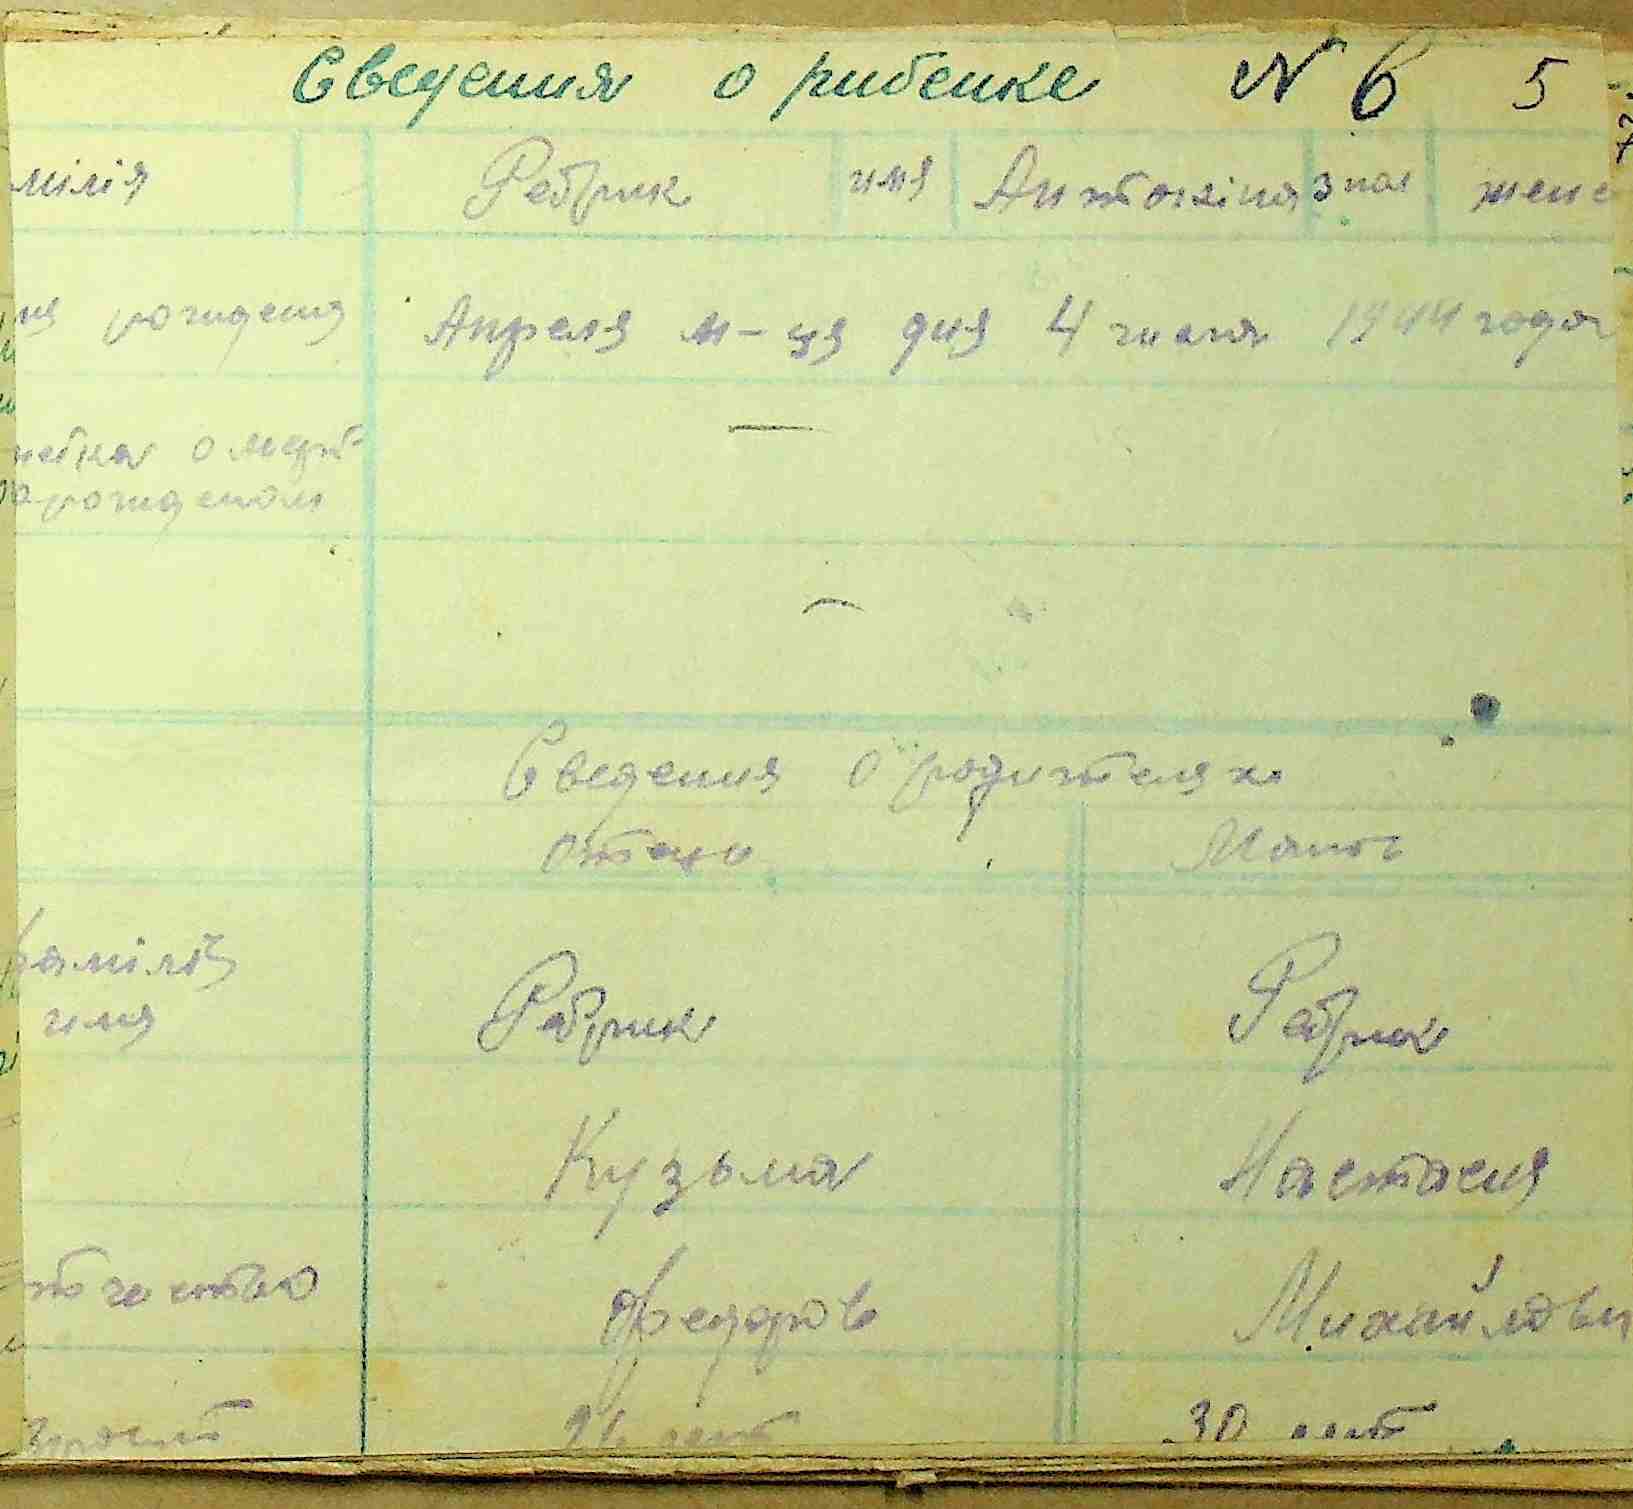 Сведения о рибенке N 6 5
мілія Ребрик имя Антоніна 3 пол женс
ия рождения Апреля м-ця дня 4 числа 1944 года
метка о мерт
рожденом
Сведения о родителях
Отец Мать
фамілія
имя Ребрик Ребрик
Кузьма Настасия
тчество Федоров Михайловн
30 лет